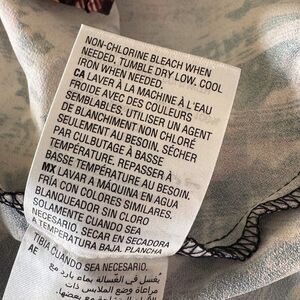 NON-CHLORINE BLEACH WHEN
NEEDED, TUMBLE DRY LOW, COOL
IRON WHEN NEEDED.
CA LAVER À LA MACHINE À L'EAU
FROIDE AVEC DES COULEURS
SEMBLABLES. UTILISER UN AGENT
DE BLANCHIMENT NON CHLORÉ
SEULEMENT AU BESOIN. SÉCHER
PAR CULBUTAGE À BASSE
TEMPÉRATURE. REPASSER À
BASSE TEMPÉRATURE AU BESOIN.
MX LAVAR A MÁQUINA EN AGUA
FRÍA CON COLORES SIMILARES.
BLANQUEADOR SIN CLORO
SOLAMENTE CUANDO SEA
NECESARIO. SECAR EN SECADORA
A TEMPERATURA BAJA. PLANCHA
TIBIA CUANDO SEA NECESARIO.
AE يغسل في الغسالة بماء بارد مع
مراعاة وضع الملابس ذات
مع بعضها.